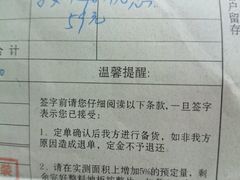 59元
户留存
合计
温馨提醒:
签字前请您仔细阅读以下条款,一旦签字
表示您已接受:
1、定单确认后我方进行备货,如非我方
原因造成退单,定金不予退还.
2、请在实测面积上增加5%的预定量,剩